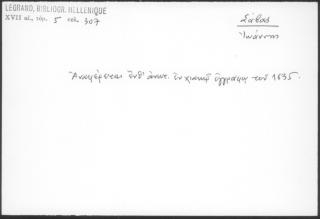 LEGRAND, BIBLIOGR. HELLENIQUE
XVII αἰ., τόμ. 5 σελ. 307
Σάβας
Ἰωάννης
Ἀναφέρεται ἔνθ' ἀνωτ. ἐν χιακῷ ἐγγράφῳ τοῦ 1635.